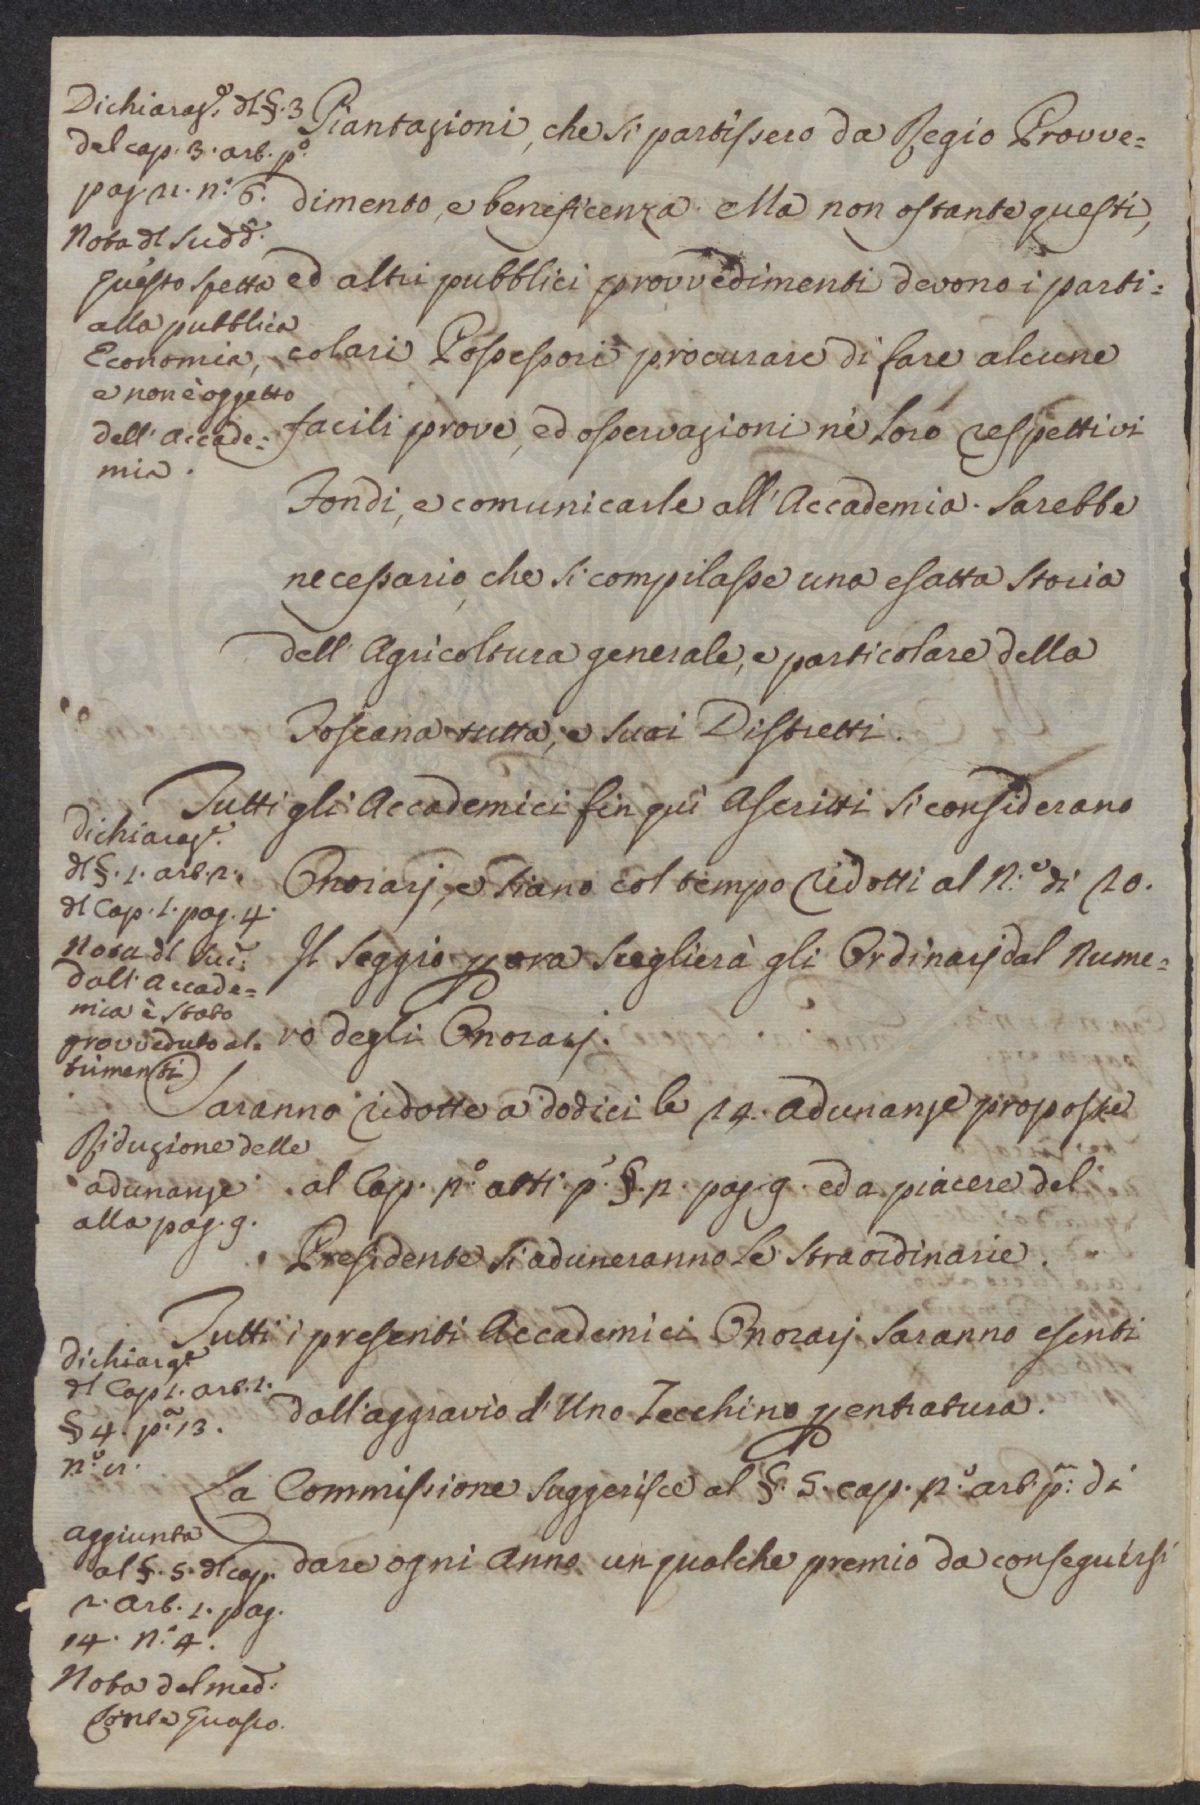 Dichiaraz.e dl §. 3
del cap. 3. art. p.o
pag. 21. n.o 6.
Nota dl Sudd.o
questo spetta
alla pubblica
Economia,
e non è oggetto
dell' Accade=
mia.
Piantazioni, che si partissero da Regio Provve=
dimento, e beneficenza. Ma non ostante questi,
ed altri pubblici provvedimenti devono i parti=
colari Possessori procurare di fare alcune
facili prove, ed osservazioni ne' loro respettivi
Fondi, e comunicarle all' Accademia. Sarebbe
necessario, che si compilasse una esatta storia
dell' Agricoltura generale, e particolare della
Toscana tutta, e suoi Distretti.
Dichiaraz.e
dl §. 1. art. 2.
dl Cap. 1. pag. 4.
Nota dl Sud.
dall' Accade=
mia è stato
provveduto al=
trimenti
Tutti gli Accademici fin quì Ascritti si considerano
Onorarj, e siano col tempo ridotti al N.o di 20.
Il Seggio p ora sceglierà gli Ordinarj dal Nume=
ro degli Onorarj.
Riduzione delle
adunanze
alla pag. 9.
Saranno ridotte a dodici le 24. adunanze proposte
al Cap. 2.o art. p.o §. 2. pag. 9. ed a piacere del
Presidente si aduneranno le straordinarie.
Dichiaraz.e
dl Cap. 2. art. 1.
§ 4. p.a 13.
n.o 11.
Tutti i presenti Accademici Onorarj saranno esenti
dall' aggravio d' Uno Zecchino p entratura.
aggiunta
al §. 5. dl cap.
2. art. 1. pag.
14. n.o 4.
Nota del med.o
Conte Guasco.
La Commissione suggerisce al §. 5. cap. 2.o art. p.o di
dare ogni Anno un qualche premio da conseguirsi